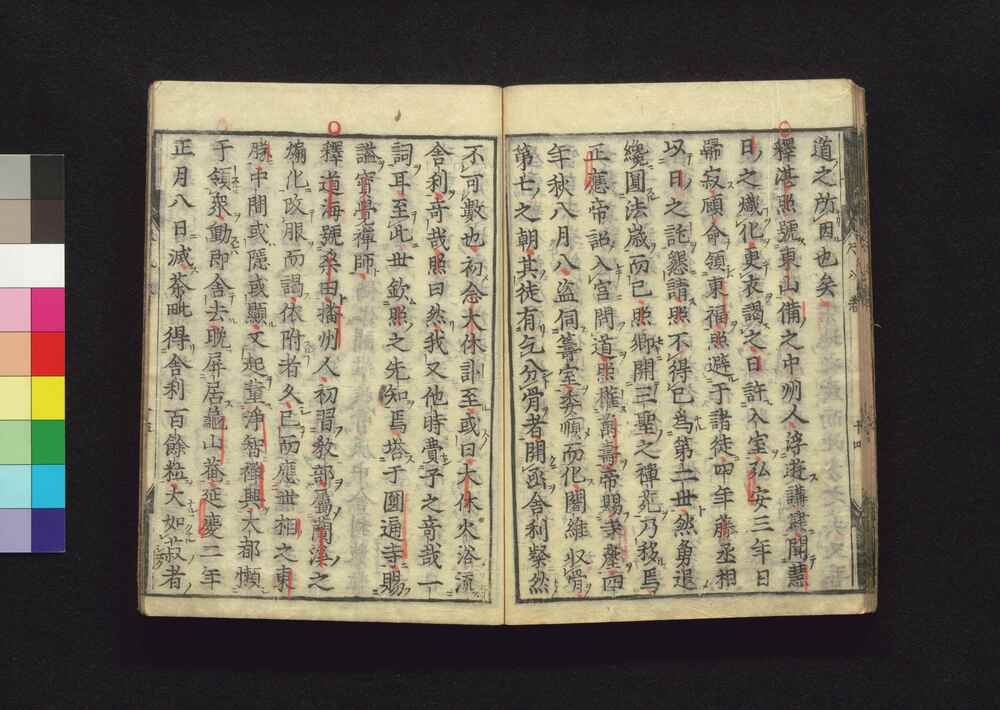 道之所因也矣
釋湛照號東山備之中州人浮遊講肆聞慧
日之熾化更衣謁之日許入室弘安三年日
歸寂顧命領東福照避于諸徒四年藤丞相
以日之託懇請照不得已為第二世然勇退
纔圓法歳而已照卿開三聖之禪苑乃移焉
正應帝詔入宮問道照権萬壽帝賜
年秋八月八盗伺等室委順而化闍維収骨
第七之朝其徒有乞分骨者開函舎利粲然
不可數也初念大休訃至或曰大休火浴流
舎利奇哉照曰然我又他時費子之奇哉一
詞耳至此世欽照之先知焉塔于圓通寺賜
謚寳覺禪師
釋道海號桑田播州人初習教部属蘭溪之
煽化改服而謁依附者久已而應世相之東
勝中間或隠或顯又起董淨智禪興太都懶
于領衆動即舎去晩屏居龜山菴延慶二年
正月八日滅荼毗得舎利百餘粒大如菽者